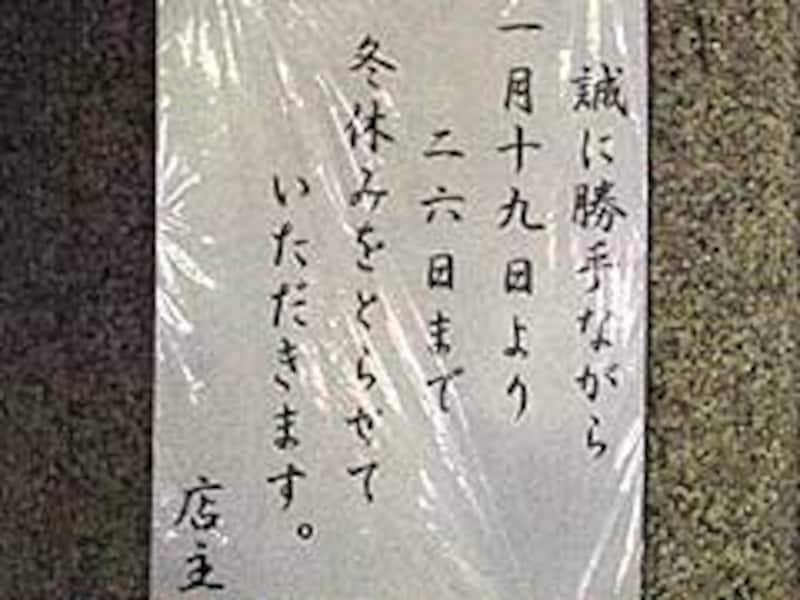 誠に勝手ながら
一月十九日より
二六日まで
冬休みをとらせて
いただきます。
店主